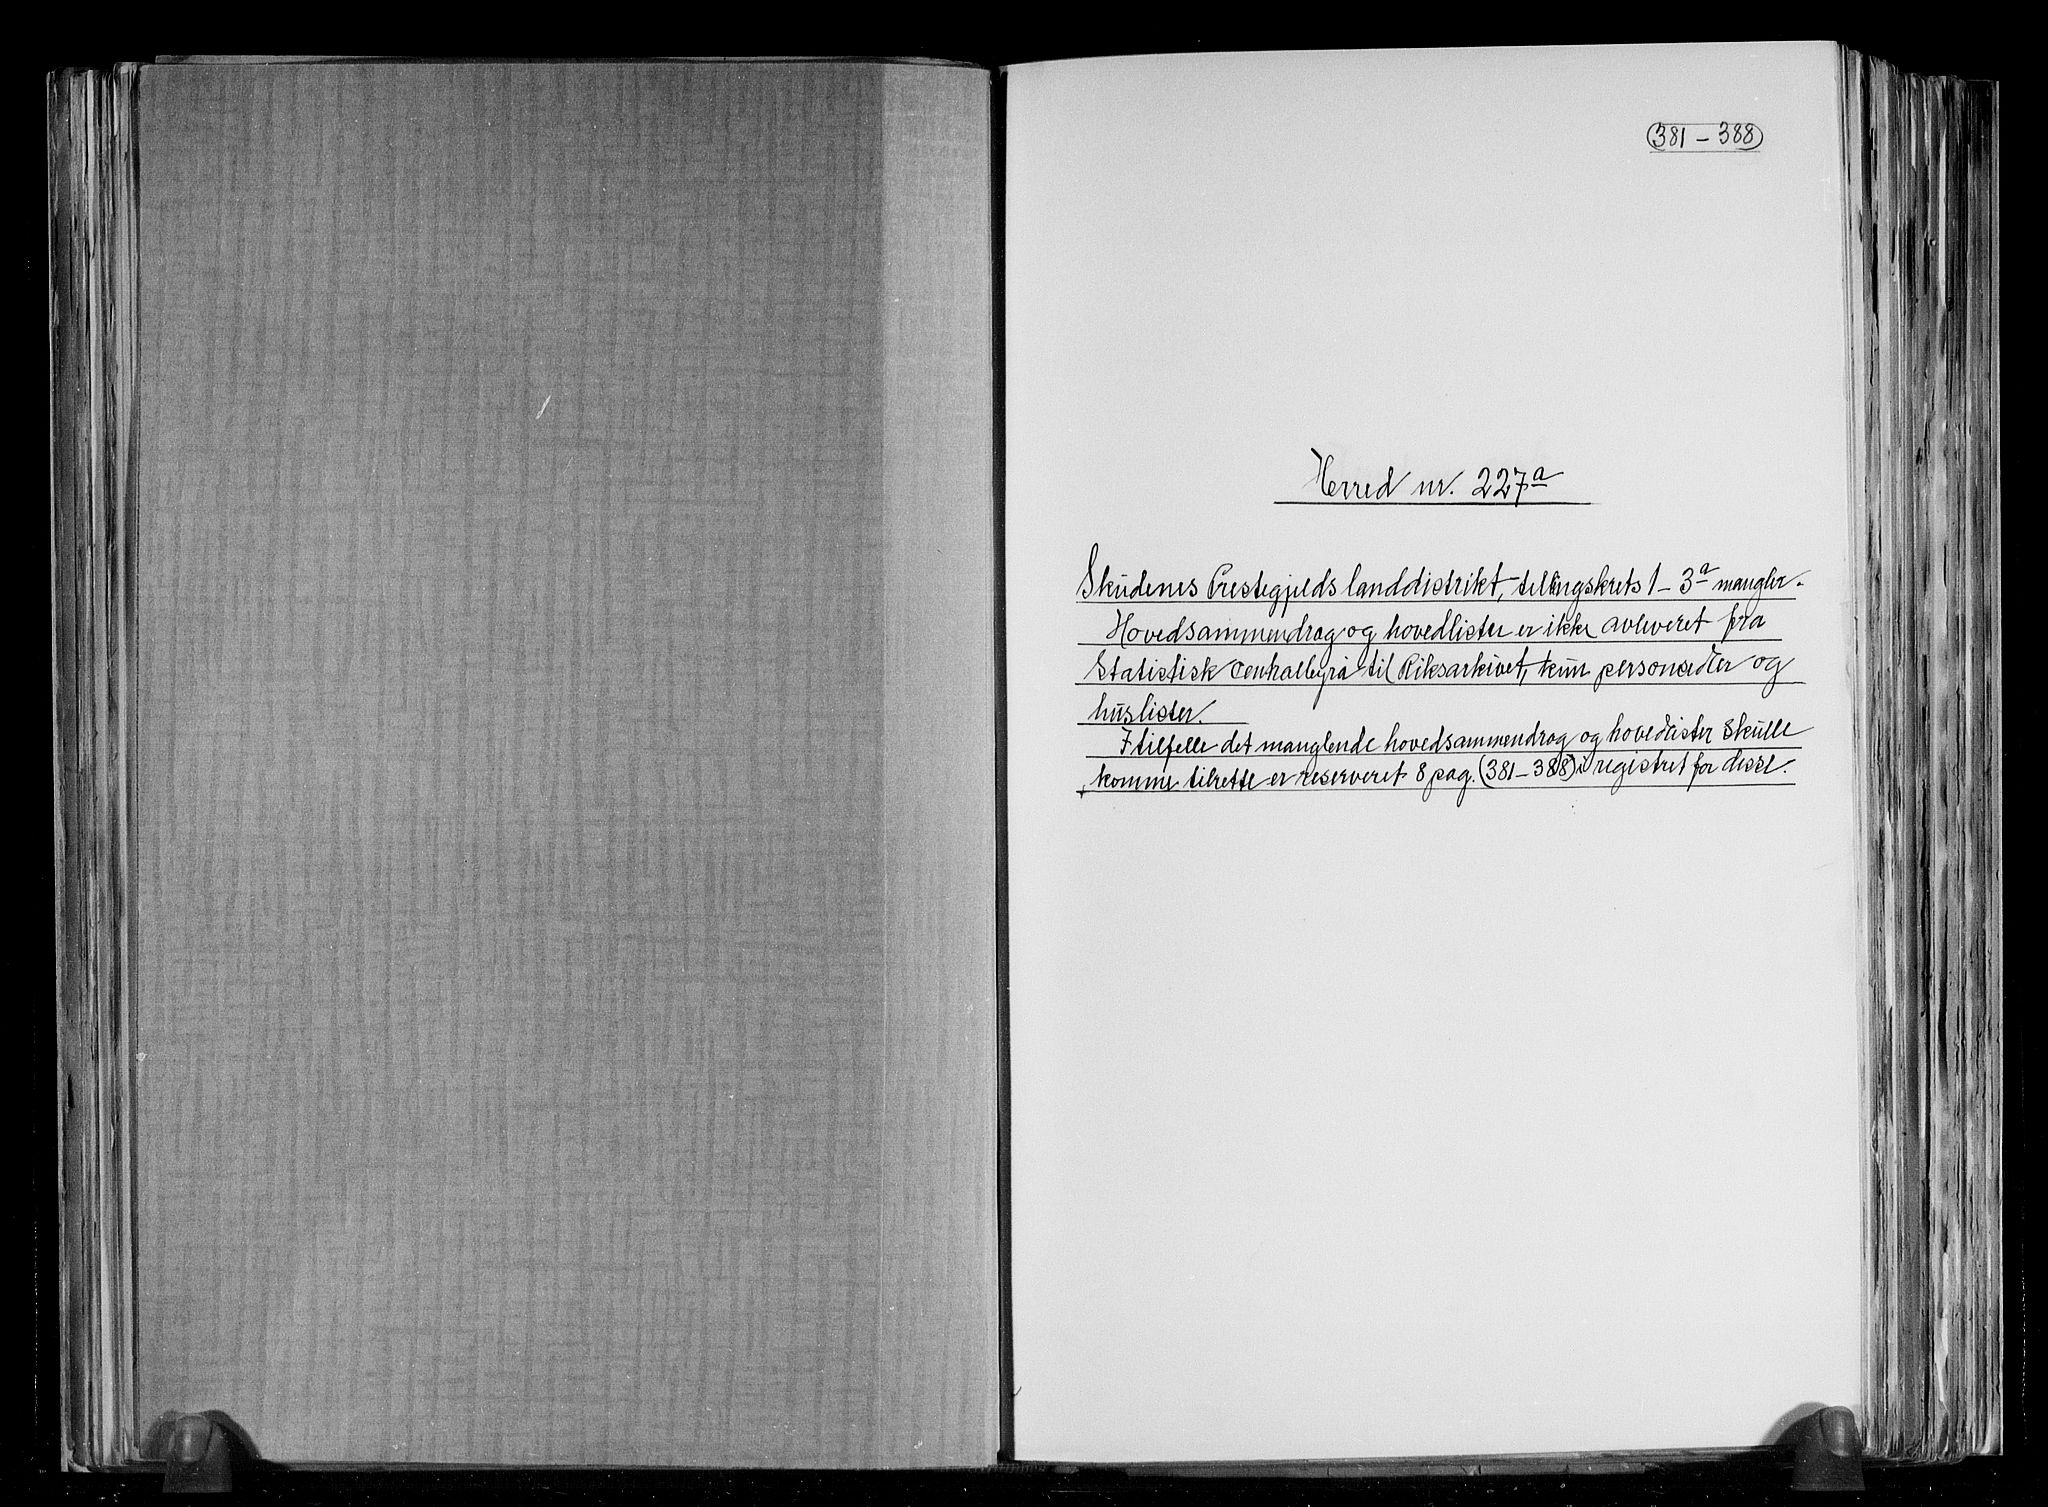 381 – 388
Herred nr. 227a
Skudenes Prestegjelds landdistrikt, tellingskrets 1 – 3a mangler.
Hovedsammendrag og hovedlister er ikke avleveret fra
Statistisk Centralbyrå til Riksarkivet, kun personsedler og
huslister.
I tilfelle det manglende hovedsammendrag og hovedlister skulle
komme tilrette er reserveret 8 pag. (381 – 388) i registret for disse.